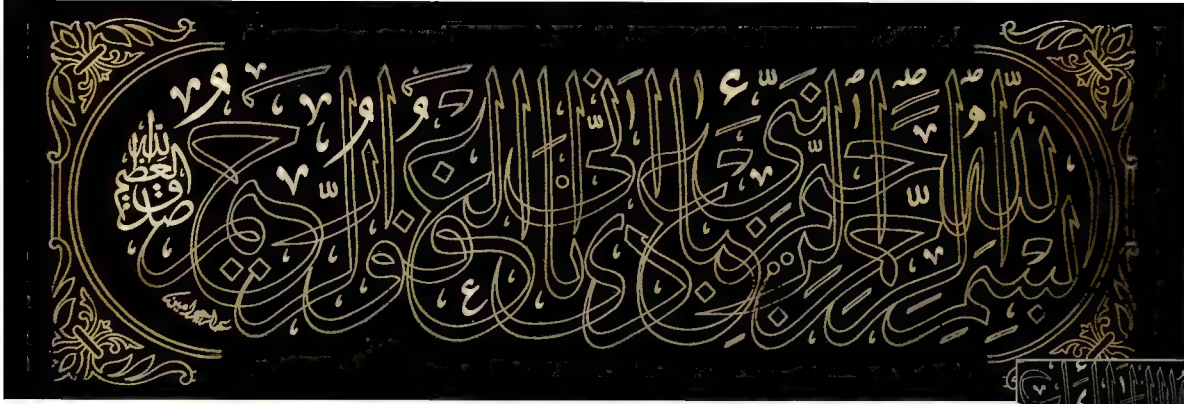 بسم الله الرحمن الرحيم
نبئ عبادي أني أنا الغفور الرحيم
صدق الله العظيم